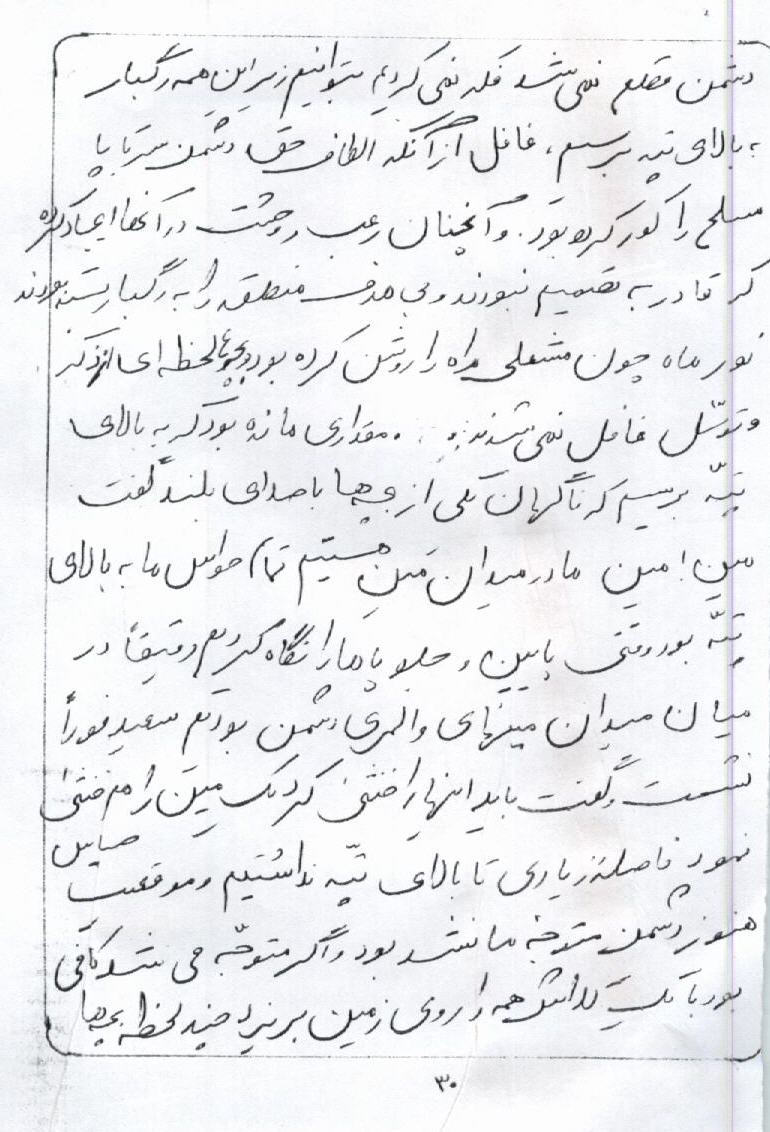 دشمن قطع نمی شد فکر نمی کردیم بتوانیم زیر این همه رگبار
به بالای تپه برسیم، غافل از آنکه الطاف حق دشمن سرتاپا
مسلح را کور کرده بود. و آنچنان رعب و وحشت در آنها ایجاد کرده
که قادر به تصمیم نبودند و بی هدف منطقه را به رگبار بسته بودند
نور ماه چون مشعلی راه را روشن کرده بود و بچه‌ها لحظه ای از ذکر
و توسّل غافل نمی شدند. مقداری مانده بود که به بالای
تپّه برسیم که ناگهان یکی از بچه ها با صدای بلند گفت
مین! مین ما در میدان مین هستیم تمام حواس ما به بالای
تپّه بود وقتی پایین و جلو پاها را نگاه کردیم دقیقاً در
میان میدان مینهای والمری دشمن بودیم سعید فوراً
نشست و گفت باید اینها را خنثی کرد یک مین را هم خنثی
نمود فاصله زیادی تا بالای تپّه نداشتیم و موقعیت حساس
هنوز دشمن متوجّه ما نشده بود و اگر متوجّه می شد کافی
بود با یک همه را روی زمین بریزد چند لحظه بچه‌ها
۳۰